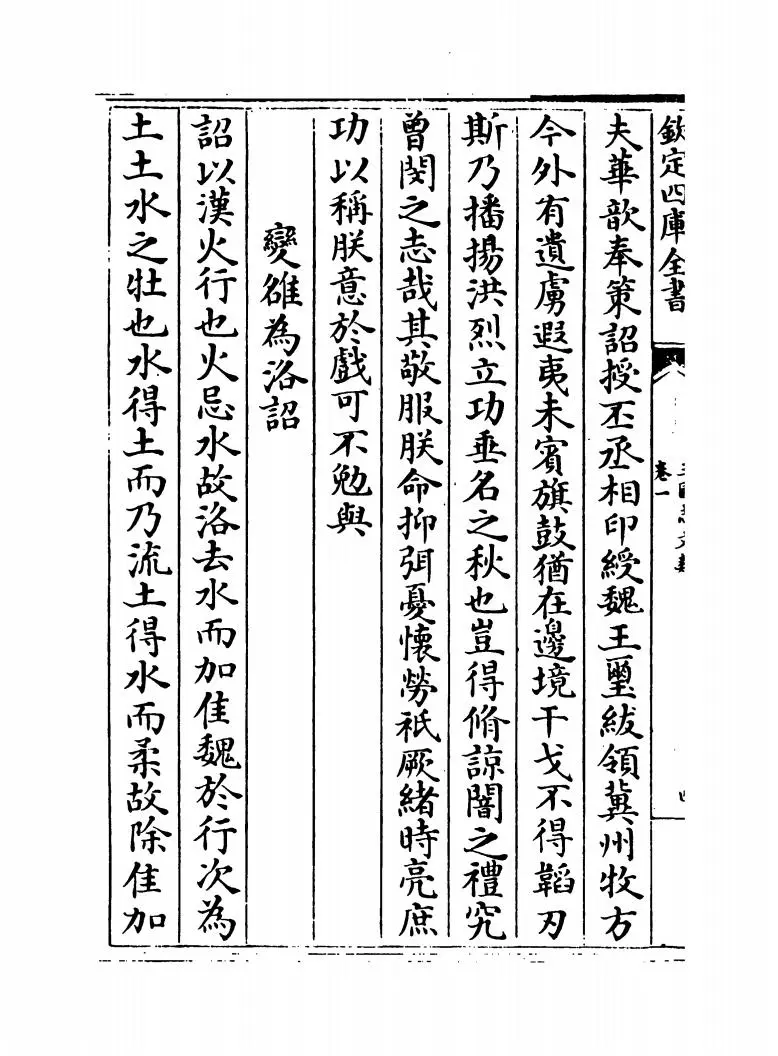 欽定四庫全書
三國志文類
卷一
夫華歆奉策詔授丕丞相印綬魏王璽紱領冀州牧方
今外有遺虜遐夷未賓旗鼓猶在邊境干戈不得韜刃
斯乃播揚洪烈立功垂名之秋也豈得脩諒闇之禮究
曾閔之志哉其敬服朕命抑弭憂懷勞祇厥緒時亮庶
功以稱朕意於戲可不勉與
變雒為洛詔
詔以漢火行也火忌水故洛去水而加隹魏於行次為
土土水之牡也水得土而乃流土得水而柔故除隹加